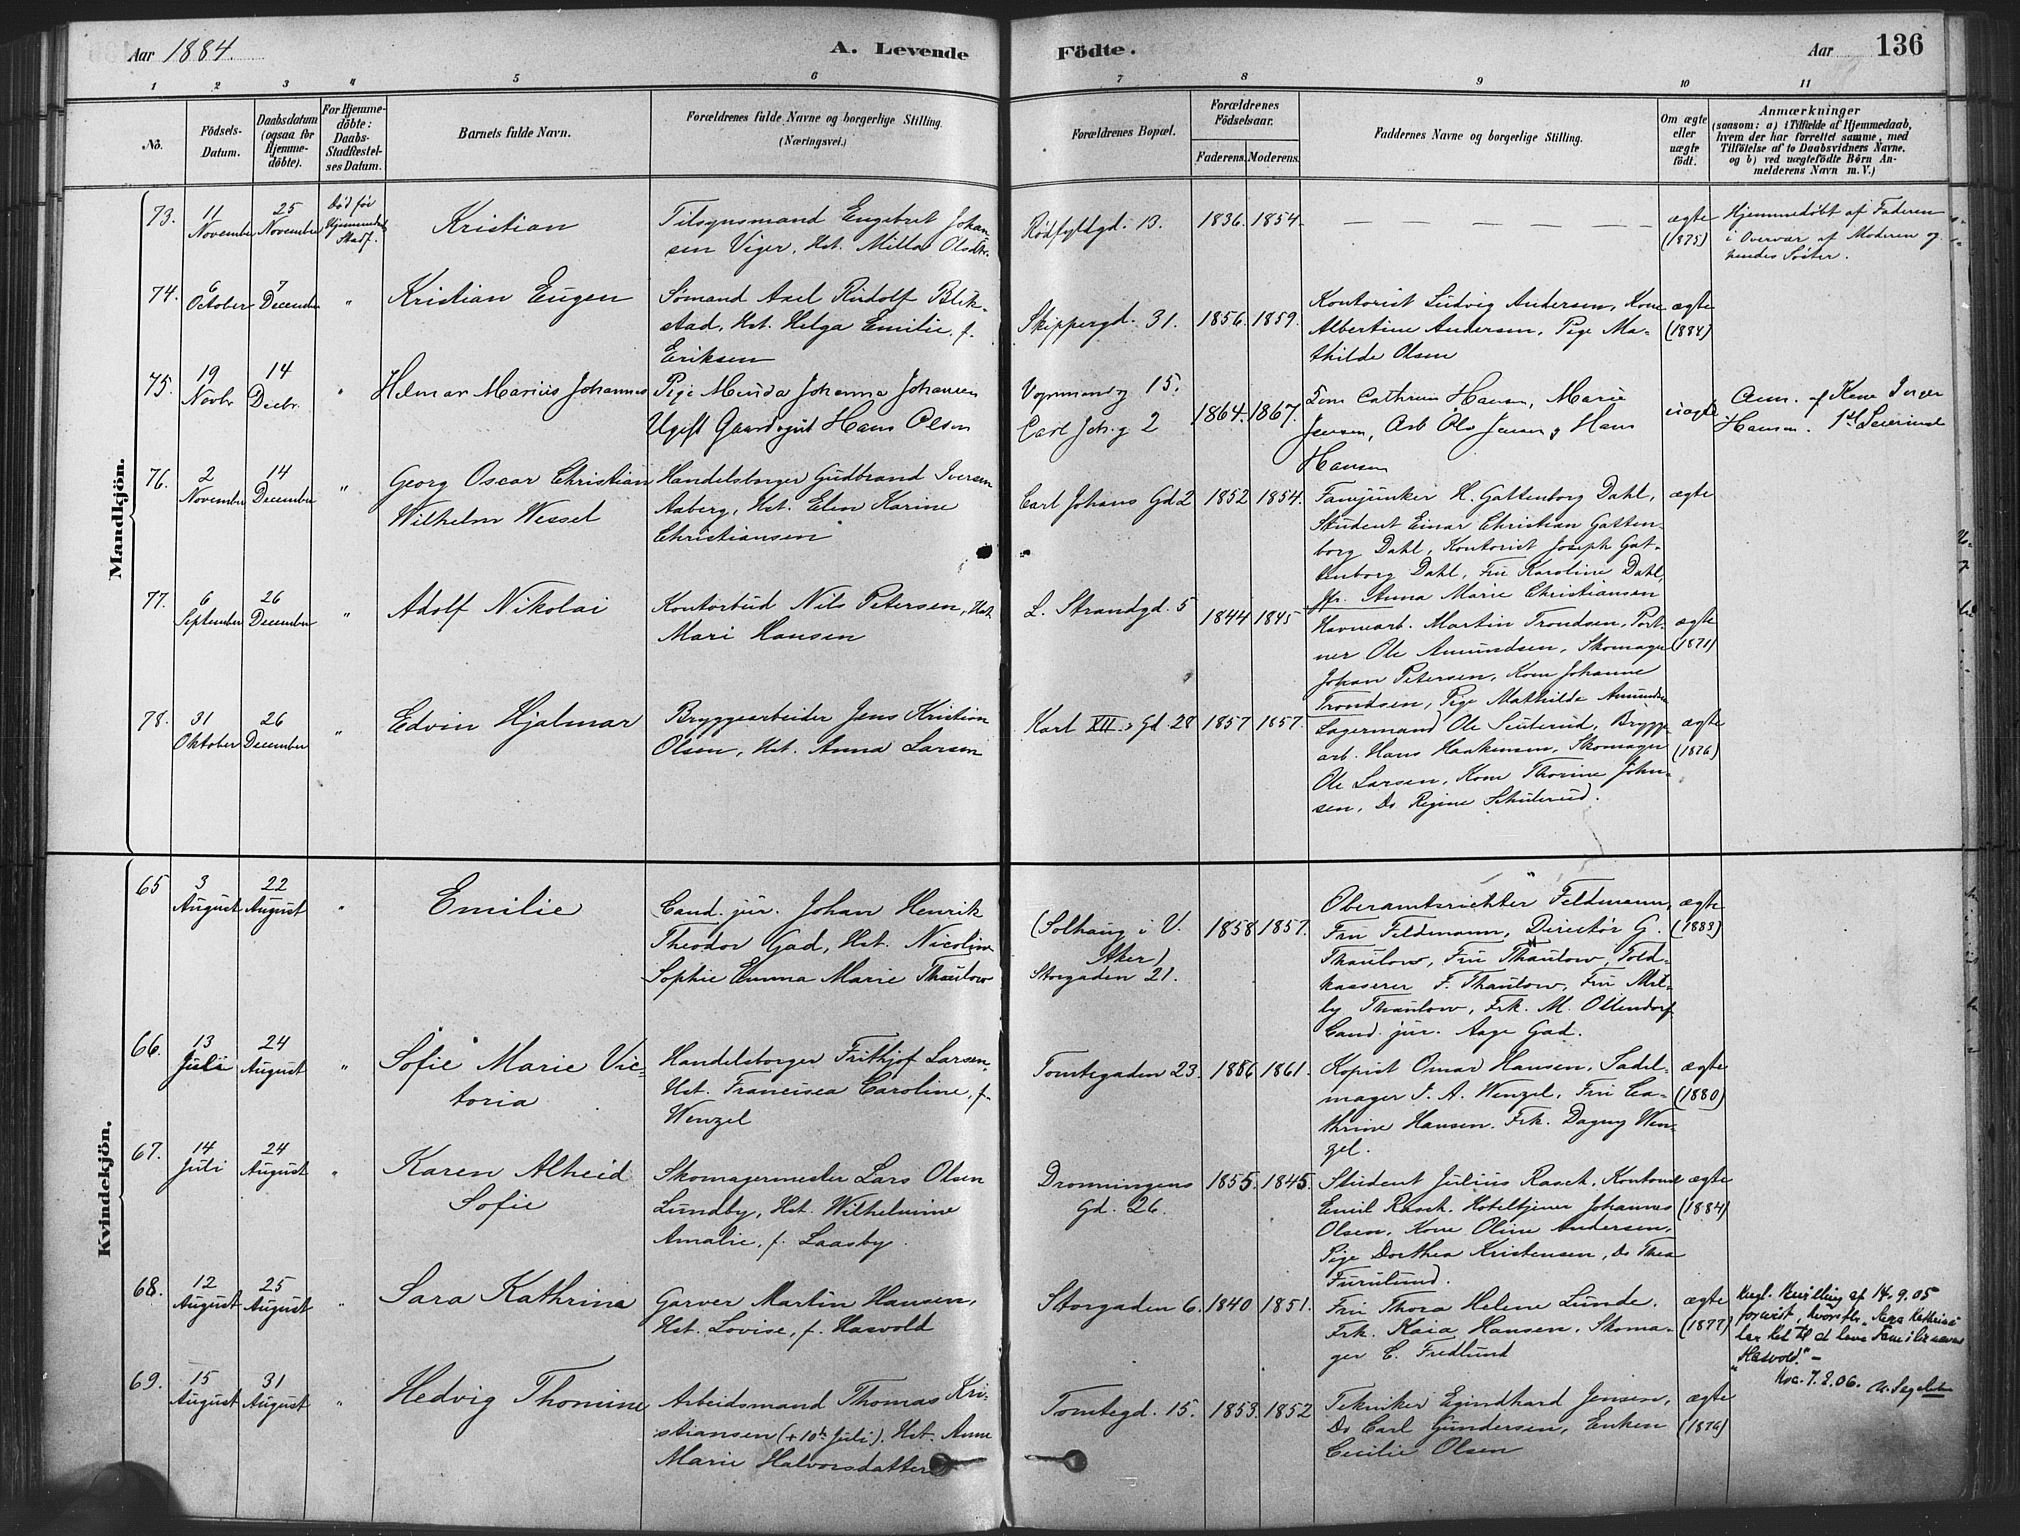 Aar 1884.
A. Levende Födte.
Aar 136
1 2 3 4 5 6 7 8 9 10 11
No.
Födsels-Datum.
Daabsdatum (ogsaa for Hjemmedöbte).
For Hjemmedöbte: Daabs-Stadfestelses Datum.
Barnets fulde Navn.
Forældrenes fulde Navne og borgerlige Stilling.
(Næringsvei.)
Forældrenes Bopæl.
Forældrenes Födselsaar.
Faderens. Moderens.
Faddernes Navne og borgerlige Stilling.
Om ægte eller uægte födt.
Anmærkninger
(saasom: a) i Tilfælde af Hjemmedaab,
hvem der har forrettet samme, med
Tilföielse af to Daabsvidners Navne,
og b) ved uægtefödte Börn Anmelderens Navn m. V.)
Mandkjön.
73. 11 November 25 November Död för Hjemmedaab Stadf.
Kristian
Tilsynsmand Engebret Johan-
sen Viger, Hst. Milla Olsdtr.
Rödfyldgd. 13. 1836. 1854.
ægte (1875)
Hjemmedöbt af Faderen
i Overvær af Moderen og
hendes Söster.
74. 6 October 7 December "
Kristian Eugen
Sömand Axel Rudolf Blik-
stad, Hst. Helga Emilie, f.
Eriksen
Skippergd. 31. 1856. 1859.
Kontorist Ludvig Andersen, Kone
Albertine Andersen, Pige Ma-
thilde Olsen
ægte (1884)
75. 19 Novbr 14 Decbr. "
Helmar Marius Johannes
Pige Menda Johanna Johansen
Ugift Gaardsgut Hans Olsen
15.
Carl Joh. g 2 1864. 1867.
Cathrine Hansen, Marie
Jensen, Arb Ols Jensen, Hans
Hansen
uagte
Anm. af Kone
Hansen.
76. 2 November 14 December "
Georg Oscar Christian
Wilhelm Wessel
Handelsborger Gudbrand Iversen
Aaberg, Hst. Elen Karine
Christiansen
Carl Johans Gd 2 1852 1854.
Fanejunker H. Gattenborg Dahl,
Student Einar Christian Gatten-
borg Dahl, Kontorist Joseph Gat-
tenborg Dahl, Fru Karoline Dahl,
Anna Marie Christiansen
ægte
77. 6 September 26 December "
Adolf Nikolai
Kontorbud Nils Petersen, Hst.
Mari Hansen
L. Strandgd. 5 1844 1845
Havnearb. Martin Trondsen, Port-
ner Ole Amundsen, Skomager
Johan Petersen, Kone Johanne
Trondsen, Pige Mathilde Amundsen
ægte (1871)
78. 31 Oktober 26 December "
Edvin Hjalmar
Bryggearbeider Jens Kristian
Olsen, Hst. Anna Larsen
Karl XII.s Gd 28 1857 1857
Lagermand Ole Seuterud, Brygge-
arb. Hans Haakensen, Skomager
Ole Larsen, Kone Thorine John-
sen, Do Regine Schuterud.
ægte (1876)
Kvindekjön.
65 3 August 22 August "
Emilie
Cand. jur. Johan Henrik
Theodor Gad, Hst. Nicoline
Sophie Emma Marie Thaulow
(Solhaug i V.
Aker)
Storgaden 21. 1858 1857.
Oberamtsrichter Feldmann,
Fru Feldmann, Direktör G.
Thaulow, Fru Thaulow, Told-
kasserer F. Thaulow, Fru Mil-
ly Thaulow, Frk. M. Ottendorf
Cand. jur. Aage Gad.
ægte (1883)
66. 13 Juli 24 August "
Sofie Marie Vic-
toria
Handelsborger Frithjof Larsen,
Hst. Francisca Caroline, f.
Wenzel
Tomtegaden 23. 1886 1861.
Kopist Omar Hansen, Sadel-
mager J. A. Wenzel, Fru Ca-
thrine Hansen. Frk. Dagny Wen-
zel.
ægte (1880)
67. 14 Juli 24 August "
Karen Alheid
Sofie
Skomagermester Lars Olsen
Lundby, Hst. Wilhelmine
Amalie, f. Laasby.
Dronningens
Gd. 26. 1855. 1845.
Student Julius Rasch, Kontorist
Emil Rasch. Hoteltjener Johannes
Olsen, Kone Oline Andersen,
Pige Dorthea Kristensen, Do Thea
Furulund.
ægte (1884)
68. 12 August 25 August "
Sara Kathrine
Garver Martin Hansen,
Hst. Lovise, f. Hasvold
Storgaden 6. 1840 1851.
Fru Thora Helene Lunde.
Frk. Kaia Hansen. Skoma-
ger C. Fredlund
ægte (1877)
Kngl. Bevilling af 14.9.05
forevist, hvorefter Sara Kathrine
har Ret til at bære Familienavnet
"Hasvold". –
Kra. 7.2.06.
69. 15 August 31 August "
Hedvig Thomine
Arbeidsmand Thomas Kri-
stiansen (+ 10de Juli). Hst. Anne
Marie Halvorsdatter
Tomtegd. 15. 1853. 1852
Tekniker Egindhard Jensen,
Do Carl Gundersen, Enken
Cecilie Olsen
ægte (1876)